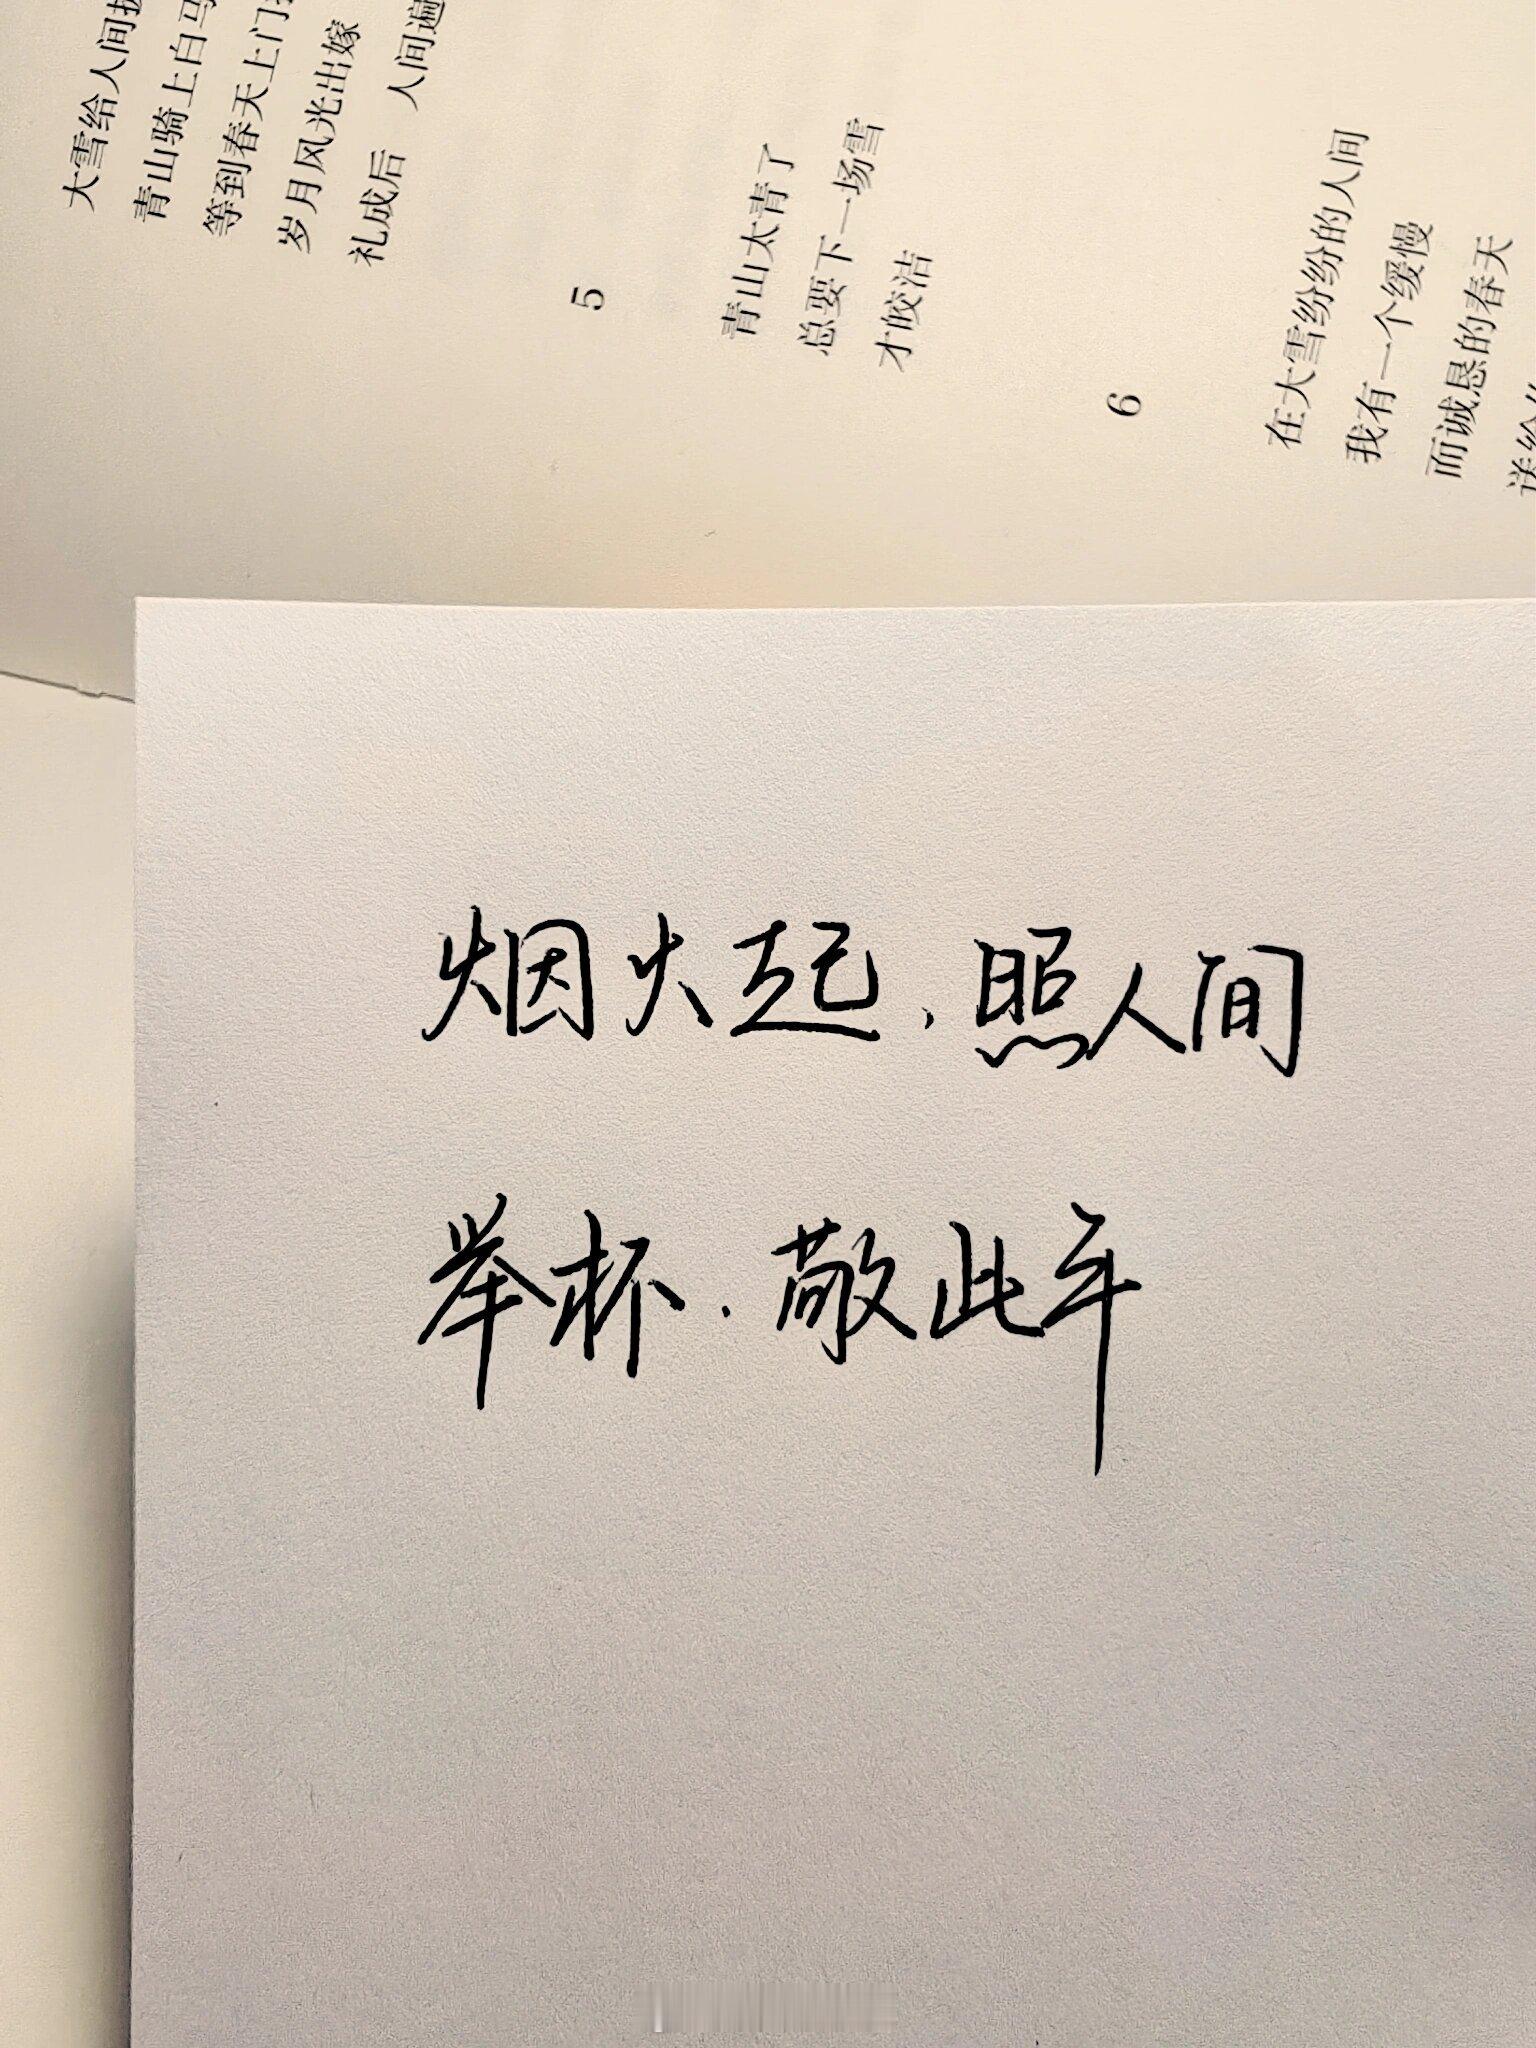 大雪给人间
青山骑上白马
等到春天上门
岁月风光出嫁
礼成后 人间遍
5
青山太青了
总要下一场雪
才皎洁
6
在大雪纷纷的人间
我有一个缓慢
而诚恳的春天
送给
烟火起，照人间
举杯．敬此年